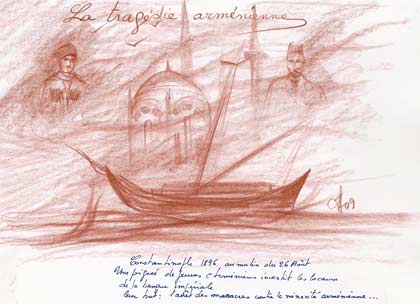 La tragédie arménienne
09
Constantinople 1896, au matin du 26 Août
Une poignée de jeunes Arméniens investit les locaux
de la banque impériale
leur but: l'arrêt des massacres contre la minorité arménienne...